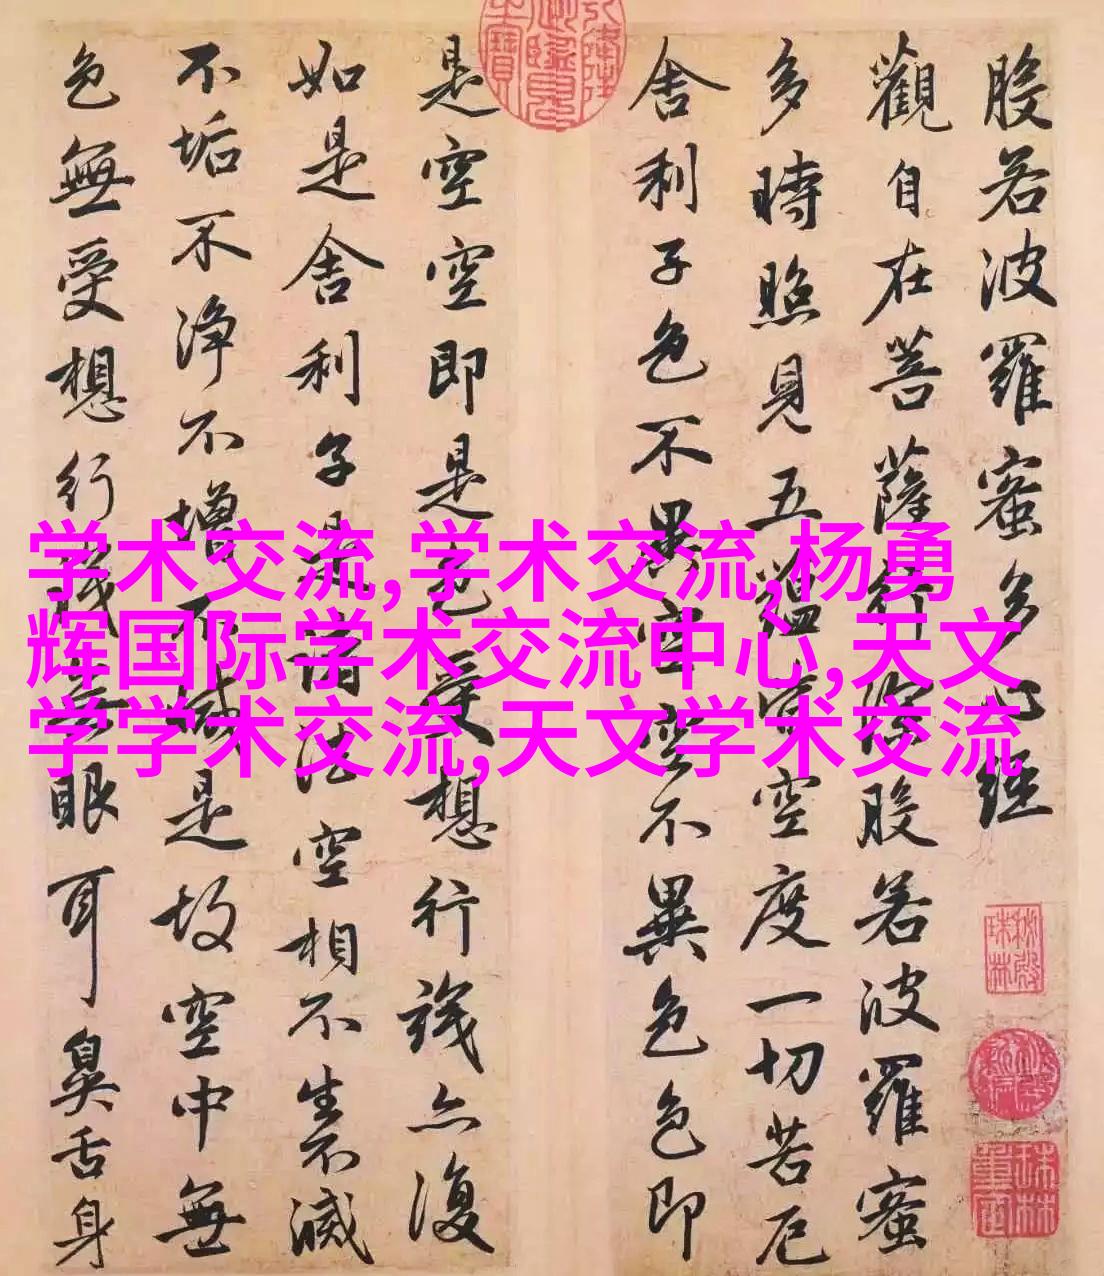 般若波羅蜜多心經
觀自在菩薩行深般若波羅蜜
多時照見五蘊皆空度一切苦厄
舍利子色不異空空不異色色即
是空空即是色受想行識亦復
如是舍利子是諸法空相不生不滅
不垢不淨不增不減是故空中無
色無受想行識無眼耳鼻舌身
学术交流,学术交流,杨勇
辉国际学术交流中心,天文
学学术交流,天文学术交流